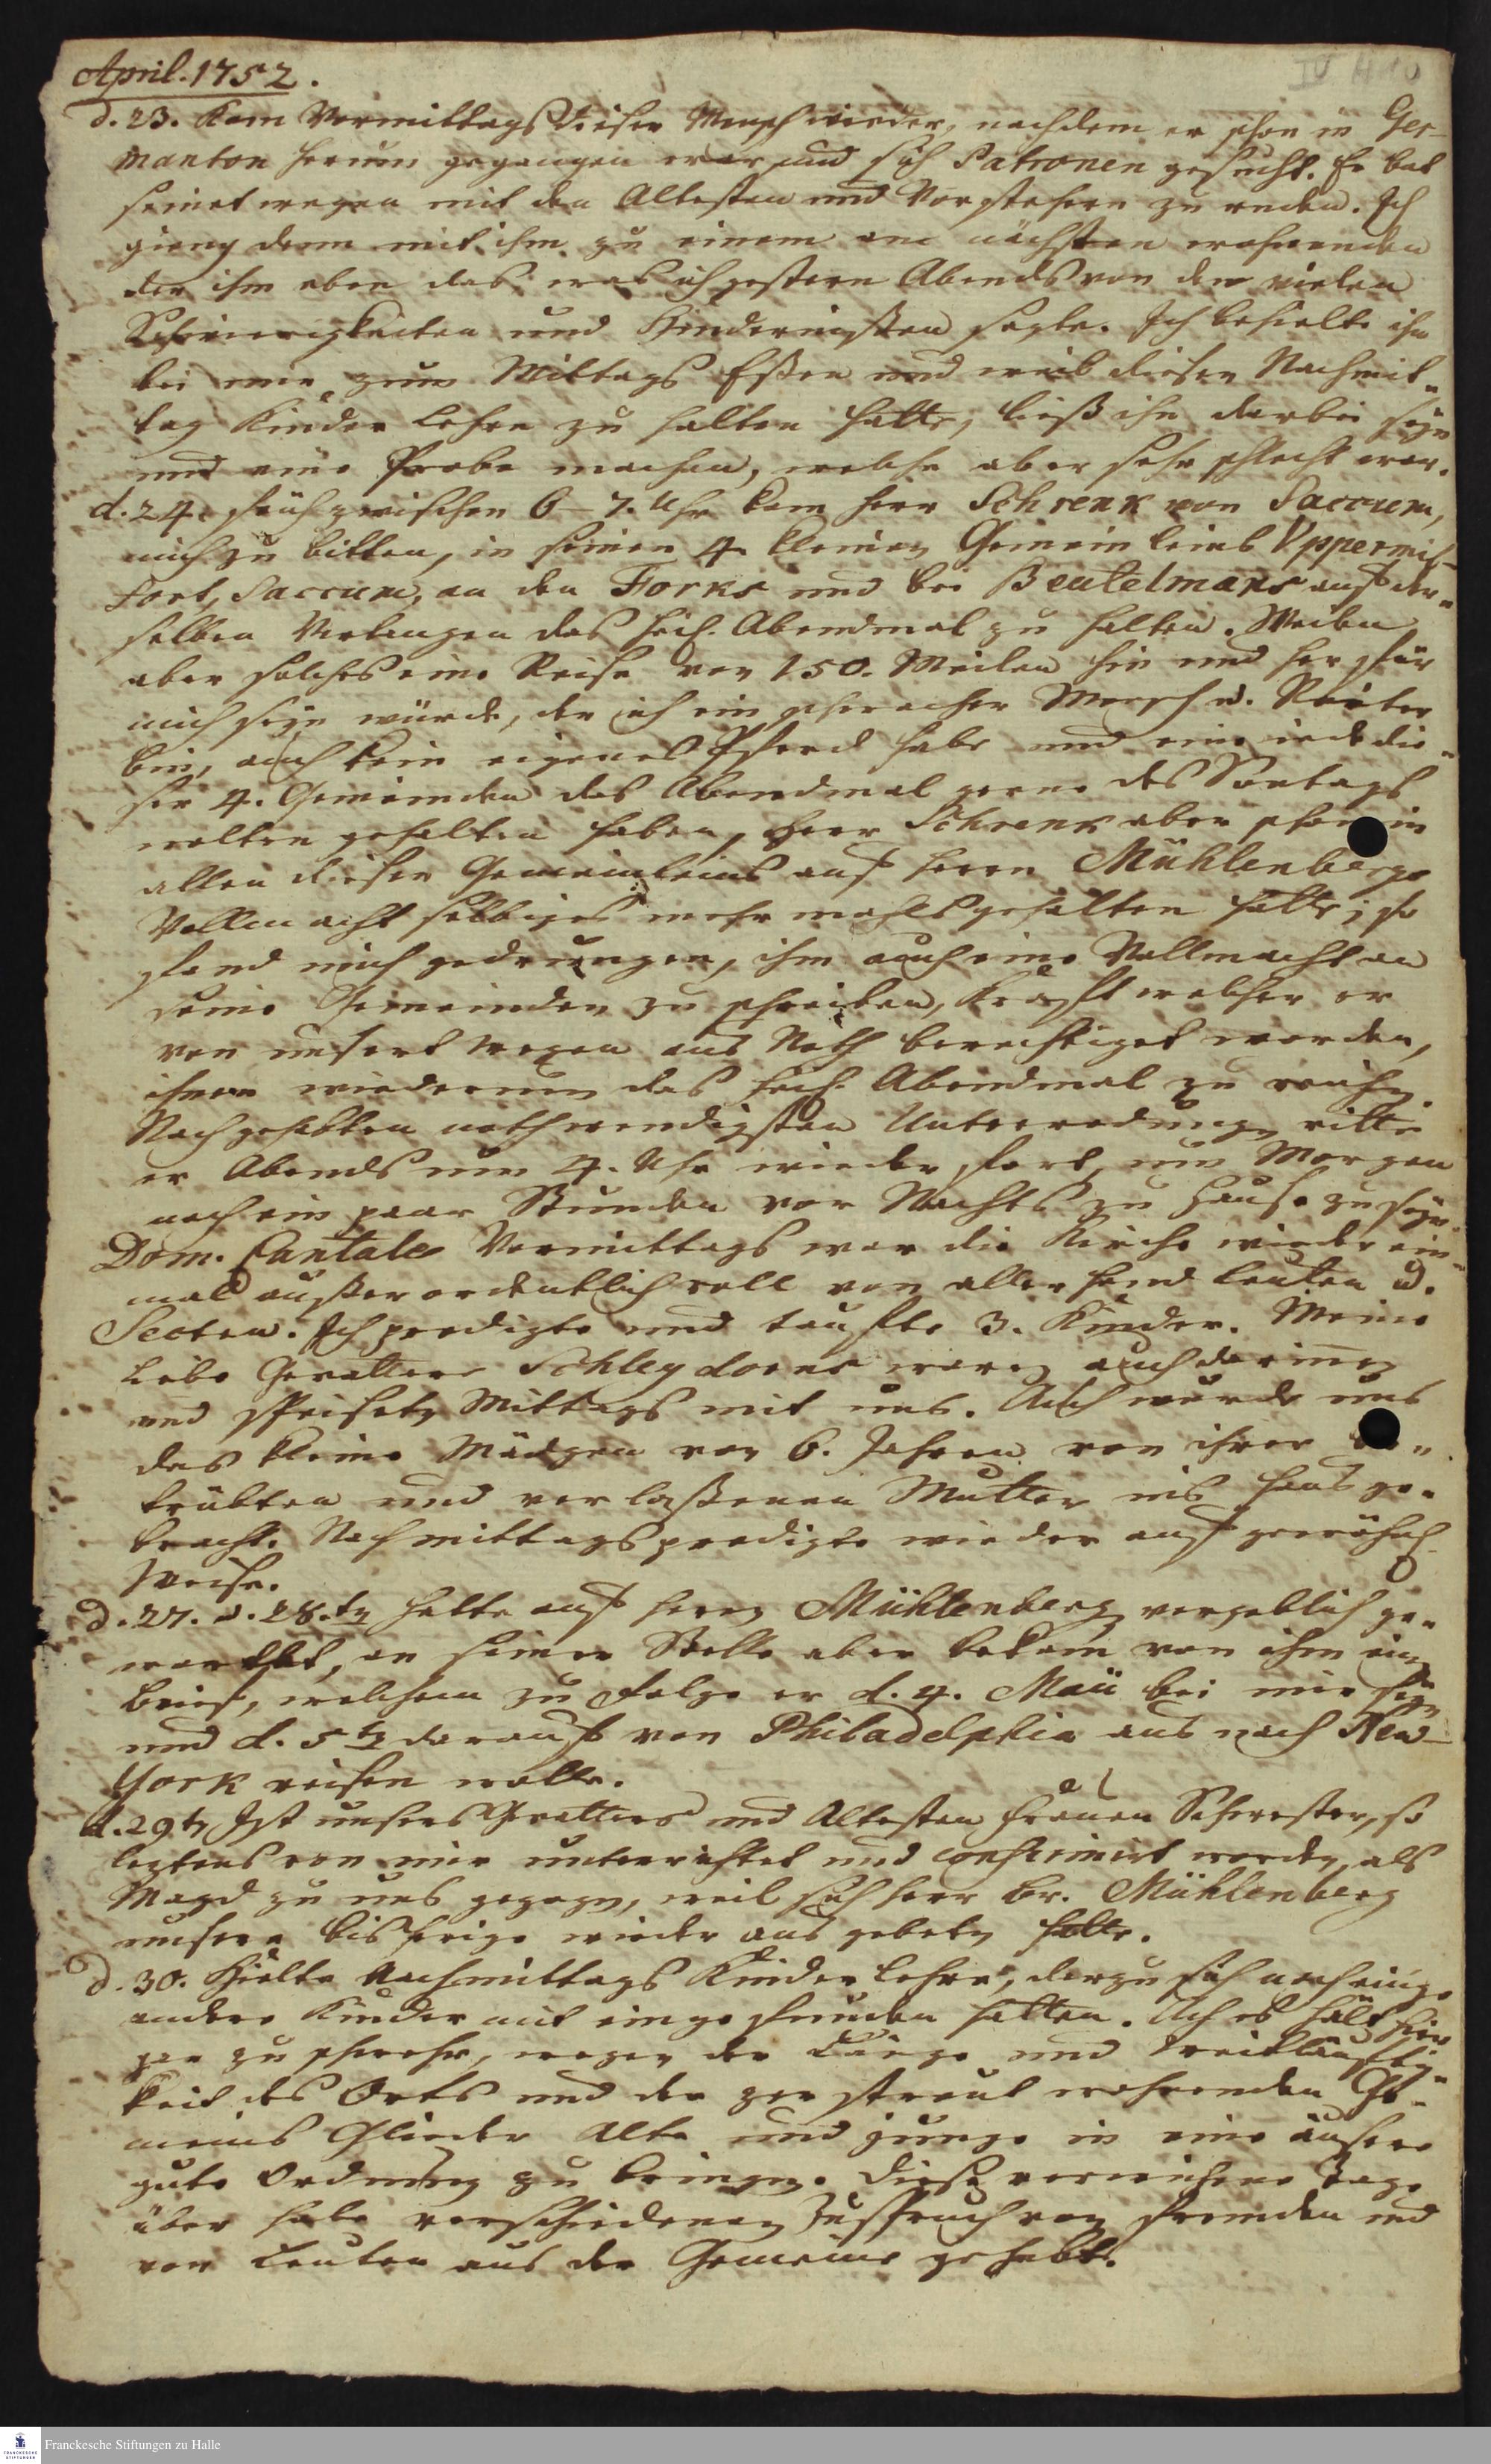 IV H 10
April. 1752.
d. 23. Kam Vormittags dieser Mensch wieder, nachdem er schon in Ger-
manton herum gegangen war und sich Patronen gesucht. Er bat
seinet wegen mit den Altesten und Vorstehern zu reden. Ich
gieng denn mit ihm zu einem am nächsten wohnenden
der ihm eben das was ich gestern Abends von den vielen
Schwierigkeiten und Hindernißen sagte. Ich behielte ihn
bei mir zum Mittags Eßen und weil diesen Nachmit„
tag Kinder Lehre zu halten hatte, ließ ihn darbei seyn
und eine Probe machen, welche aber sehr schlecht war.
d. 24. früh zwischen 6 – 7. Uhr kam Herr Schrenk von Saccum,
mich zu bitten, in seinen 4. kleinen Gemeinleins Uppermil-
fort, Saccum, an den Forks und bei Beutelmans auf der„
selben Verlangen das heil. Abendmal zu halten. Weilen
aber solches eine Reise von 150. Meilen hin und her für
mich seyn würde, der ich ein schwacher Mensch u. Reiter
bin, auch kein eigenes Pferd habe und eine iede die„
ser 4. Gemeinden das Abendmal gerne des Sontags
wolten gehalten haben, Herr Schrenk aber schon in
allen diesen Gemeinleins auf Herrn Mühlenbergs
Vollmacht selbiges mehrmahls gehalten hatte; so
fand mich gedrungen, ihm auch eine Vollmacht an
seine Gemeinden zu schreiben, Krafft welcher er
von unsert wegen aus Noth berechtiget worden,
ihnen wiederum das heil. Abendmal zu reichen.
Nach gehabten nothwendigsten Unterredungen ritte
er Abends um 4. Uhr wieder fort, um Morgen
noch ein paar Stunden vor Nachts zu Hause zu seyn.
Dom. Cantate Vormittags war die Kirche wieder ein„
mal außerordentlich voll von allerhand Leuten u.
Secten. Ich predigte und taufte 3. Kinder. Meine
liebe Gevattere Schleydorns waren auch darinnen
und speiseten Mittags mit uns. Auch wurde uns
das kleine Mädgen von 6. Jahren von ihrer „
trübten und verlaßenen Mutter ins Haus ge„
bracht. Nachmittags predigte wieder auf gewöhnl.
Weise.
d. 27. u. 28.ten hatte auf Herrn Mühlenberg vergeblich ge„
wartet, an seiner Stelle aber bekam von ihm einen
Brief, welchem zu Folge er d. 4. Maii bei mir seyn
und d. 5ten darauf von Philadelphia aus nach New-
York reisen wolle.
d. 29ten Ist unsers Gevatters und Altesten Frauen Schwester, so
leztens von mir unterrichtet und confirmirt worden, als
Magd zu uns gezogen, weil sich Herr Br. Mühlenberg
unsere bisherige wieder aus gebeten hatte.
d. 30. Hielte Nachmittags Kinder Lehre, darzu sich noch einige
andere Kinder mit eingefunden hatten. Ach es hält hier
gar zu schwehr, wegen der Länge und Weitläuftig„
keit des Orts und der zerstreut wohnenden Ge„
meins Glieder Alte und junge in eine äusere
gute Ordnung zu bringen. Diese verwichene Tage
über habe verschiedenen Zuspruch von fremden und
von Leuten aus der Gemeine gehabt.
FRANCKESCHE STIFTUNGEN
Franckesche Stiftungen zu Halle